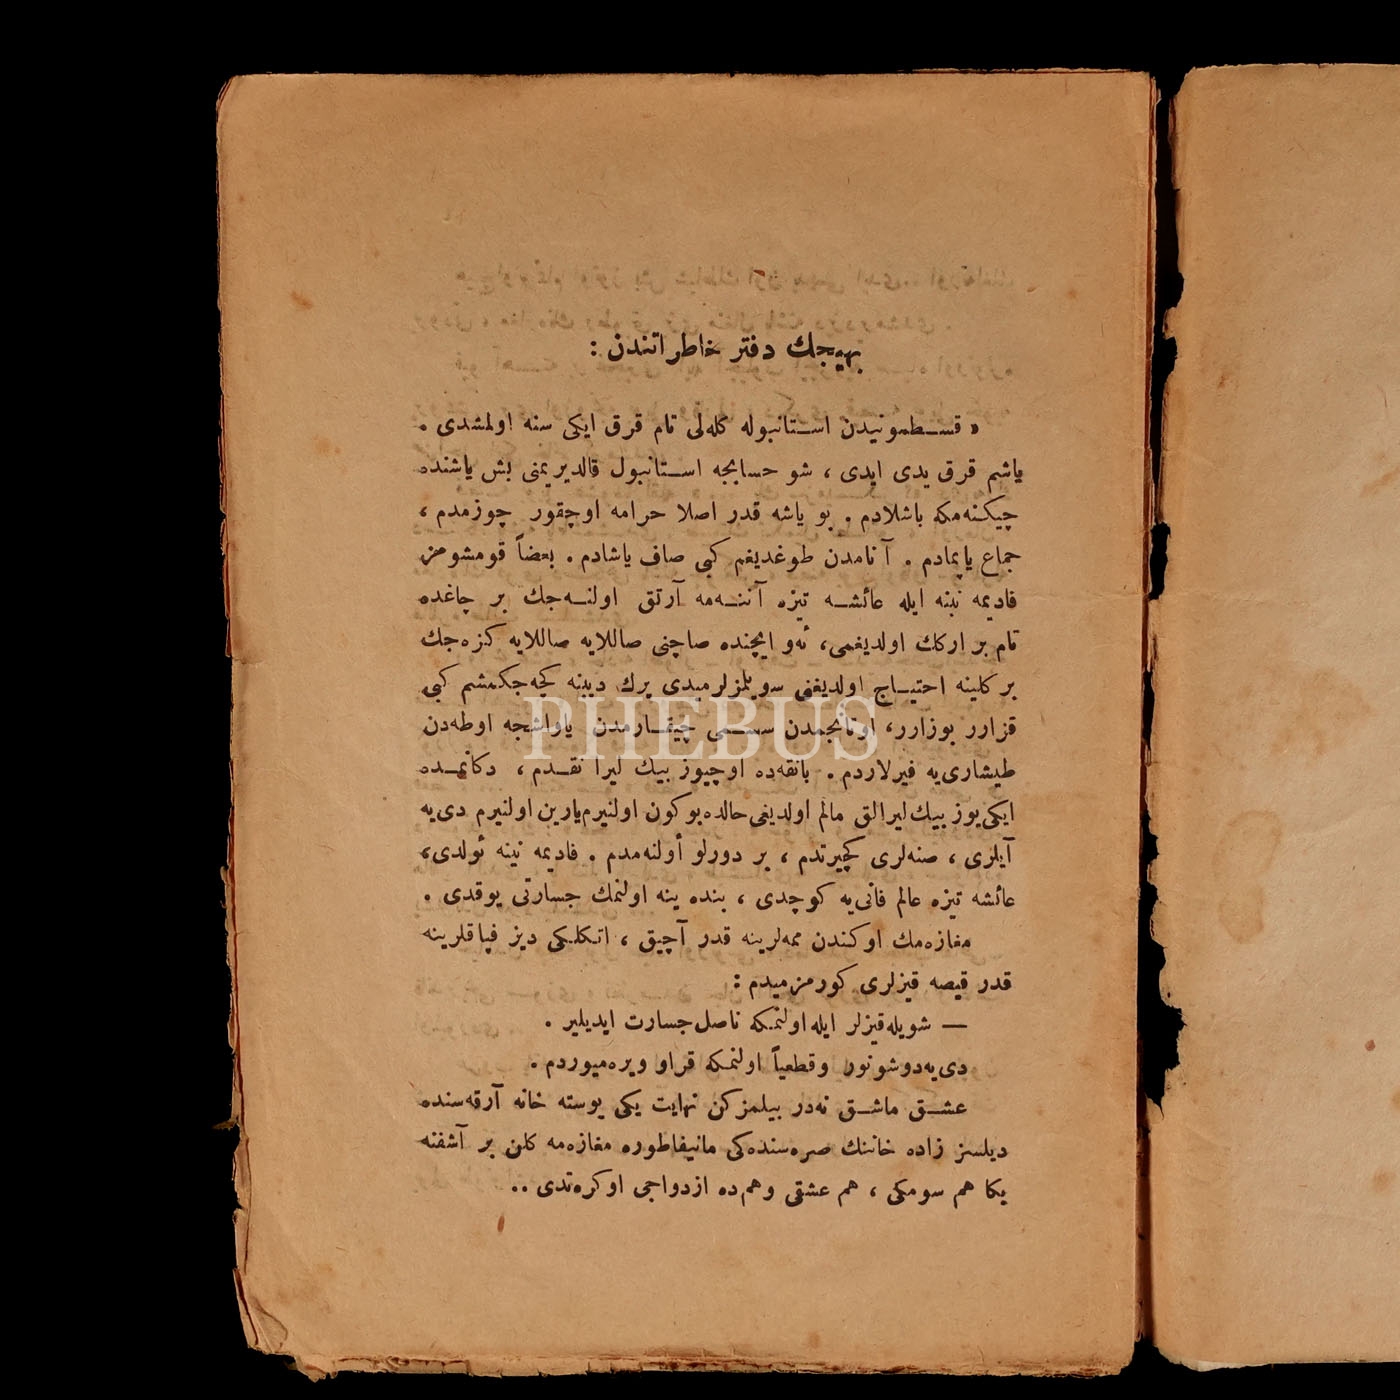 بهیجك دفتر خاطراتندن :
« قسطمونیدن استانبوله كله‌لی تام قرق ایكی سنه اولمشدی .
یاشم قرق یدی ایدی ، شو حسابجه استانبول قالدیریمنی بش یاشنده
چیكنه‌مكه باشلادم . بو یاشه قدر اصلا حرامه اوچقور چوزمدم ،
جماع یاپمادم . آنامدن طوغدیغم كبی صاف یاشادم . بعضاً قومشومز
فادیمه نینه ایله عائشه تیزه آننه‌مه آرتق اولنه‌جك بر چاغده
تام بر اركك اولدیغمی، ئه‌و ایچنده صاچنی صاللایه صاللایه كزه‌جك
بر كلینه احتیاج اولدیغنی سویلمزلرمیدی یرك دیبنه كچه‌جكمشم كبی
قزارر بوزارر، اوتانجمدن سسمی چیقارمدن یاواشجه اوطه‌دن
طیشاری‌یه فیرلاردم . بانقه‌ده اوچیوز بیك لیرا نقدم ، دكانمده
ایكی‌یوز بیك لیرالق مالم اولدیغی حالده بوكون اولنیرم یارین اولنیرم دی‌یه
آیلری ، صنه‌لری كچیرتدم ، بر دورلو أولنه‌مدم . فادیمه نینه ئولدی،
عائشه تیزه عالم فانی‌یه كوچدی ، بنده ینه اولنمك جسارتی یوقدی .
مغازه‌مك اوكندن ممه‌لرینه قدر آچیق ، اتكلكی دیز قپاقلرینه
قدر قیصه قیزلری كورمزمیدم :
— شویله قیزلر ایله اولنمكه ناصل جسارت ایدیلیر .
دی‌یه دوشونور وقطعیاً اولنمكه قراو ویره‌میوردم .
عشق ماشق نه‌در بیلمزكن نهایت یكی پوسته خانه آرقه‌سنده
دیلسز زاده خاننك صره‌سنده‌كی مانیفاطوره مغازه‌مه كلن بر آشفته
بكا هم سومكی ، هم عشقی وهم‌ده ازدواجی اوكره‌تدی ..
PHEBUS